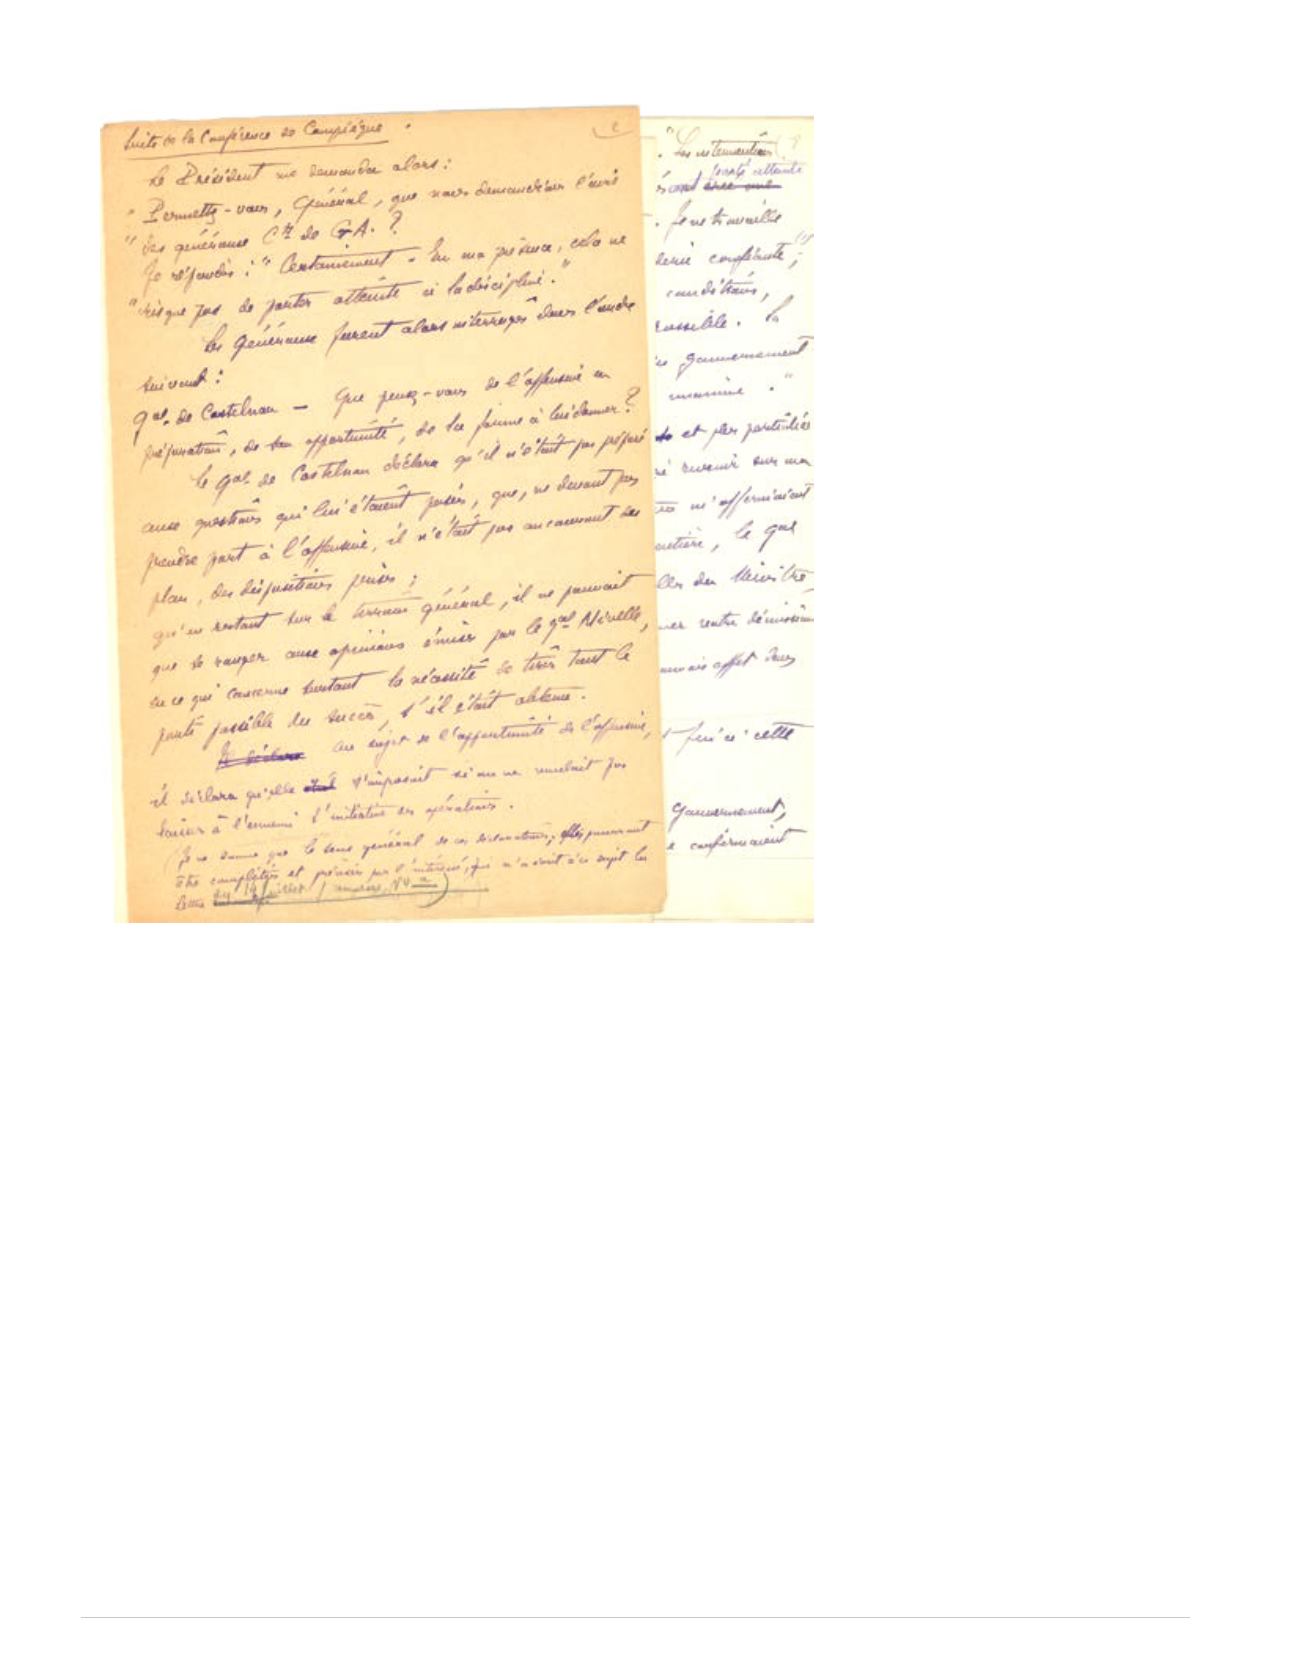 Suite de la Conférence de Compiègne.
Le Président me demanda alors :
" Permettez-vous, Général, que nous demandions l'avis
" des généraux Cts de G.A. ?
Je répondis : " Certainement - En ma présence, cela ne
" risque pas de porter atteinte à la discipline. "
Les Généraux furent alors interrogés dans l'ordre
suivant :
Gal. de Castelnau — Que pensez-vous de l'offensive en
préparation, de son opportunité, de la forme à lui donner ?
Le Gal. de Castelnau déclara qu'il n'était pas préparé
aux questions qui lui étaient posées, que, ne devant pas
prendre part à l'offensive, il n'était pas au courant du
plan, des dispositions prises ;
qu'en restant sur le terrain général, il ne pouvait
que se ranger aux opinions émises par le gal Nivelle,
en ce qui concerne surtout la nécessité de tirer tout le
parti possible du succès, s'il était obtenu.
Il déclara au sujet de l'opportunité de l'offensive,
il déclara qu'elle était s'imposait si on ne voulait pas
laisser à l'ennemi l'initiative des opérations.
(Je ne donne que le sens général de ces déclarations, elles pourront
être complétées et précisées par l'intéressé, qui m'a écrit à ce sujet la
lettre du 14 juillet (annexe, No
e
" Les interventions
sont avec une
porté atteinte
. Je ne travaille
confiante ",
conditions,
possible. La
gouvernement
unanime . "
et plus particuliè
revenir sur ma
m'offensaient
, le gal
du Ministre,
votre démission
mauvais effet dans
fin à cette
Gouvernement,
confirmaient